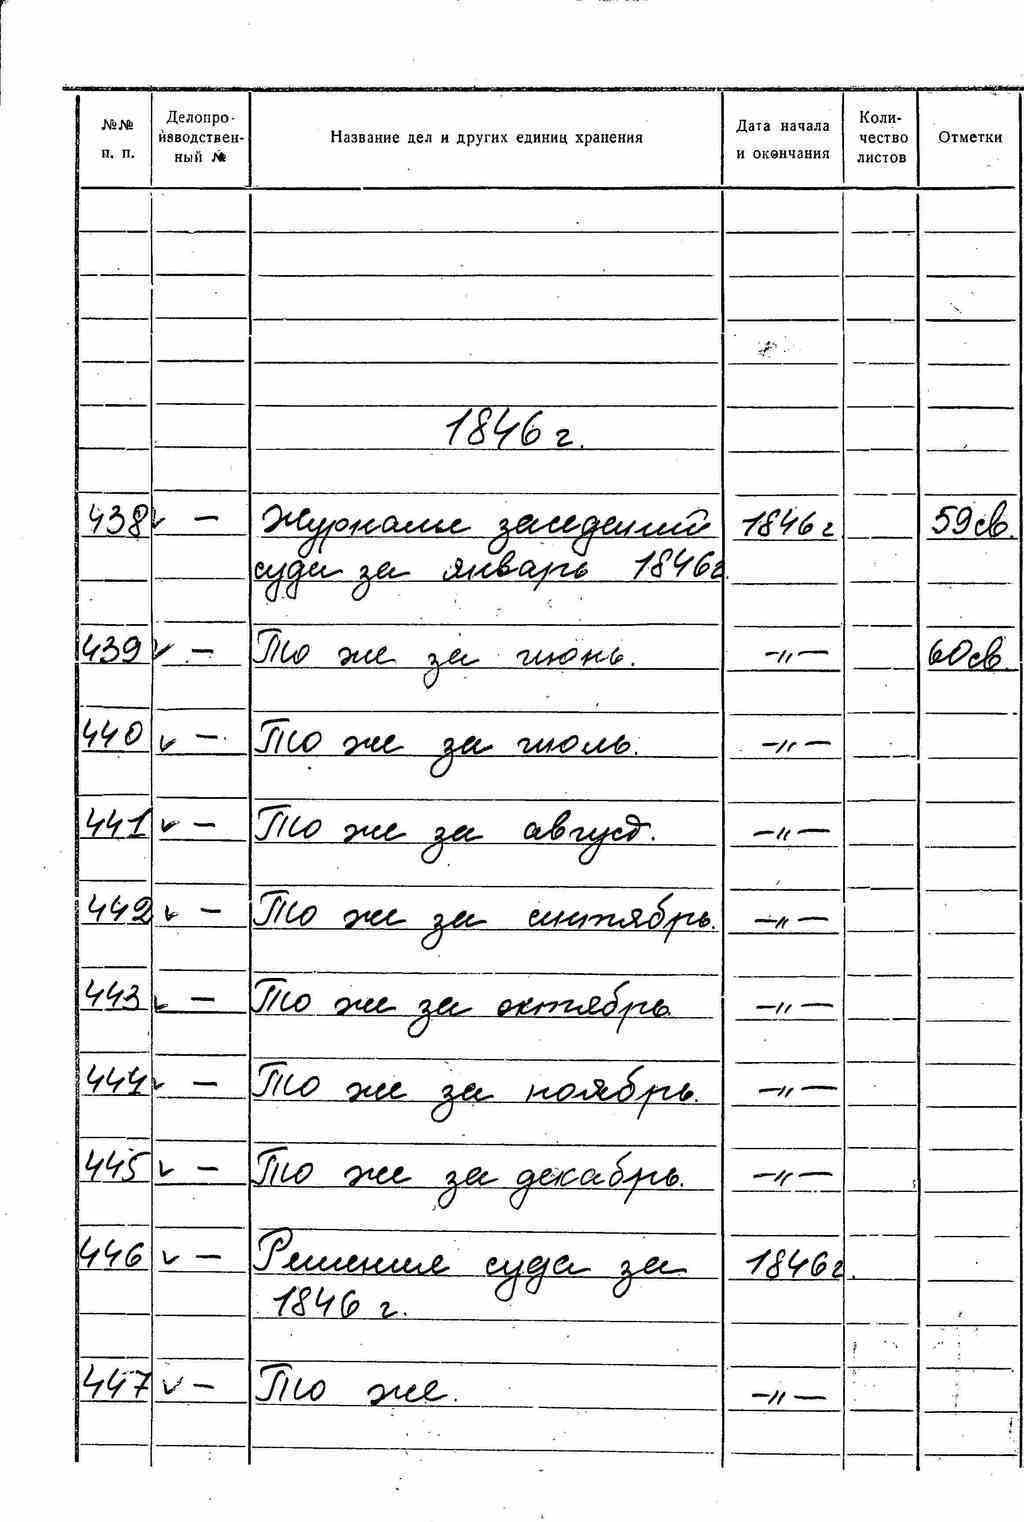 №№ п. п. Делопро- изводствен- ный № Название дел и других единиц хранения Дата начала и окончания Коли- чество листов Отметки
1846 г.
438 ✓ — Журналы заседаний 1846 г 59 св.
суда за январь 1846г.
439 ✓ — То же за июнь. —"— 60 св.
440 ✓ — То же за июль. —"—
441 ✓ — То же за август. —"—
442 ✓ — То же за сентябрь. —"—
443 ✓ — То же за октябрь —"—
444 ✓ — То же за ноябрь. —"—
445 ✓ — То же за декабрь. —"—
446 ✓ — Решения суда за 1846г.
1846 г.
447 ✓ — То же. —"—